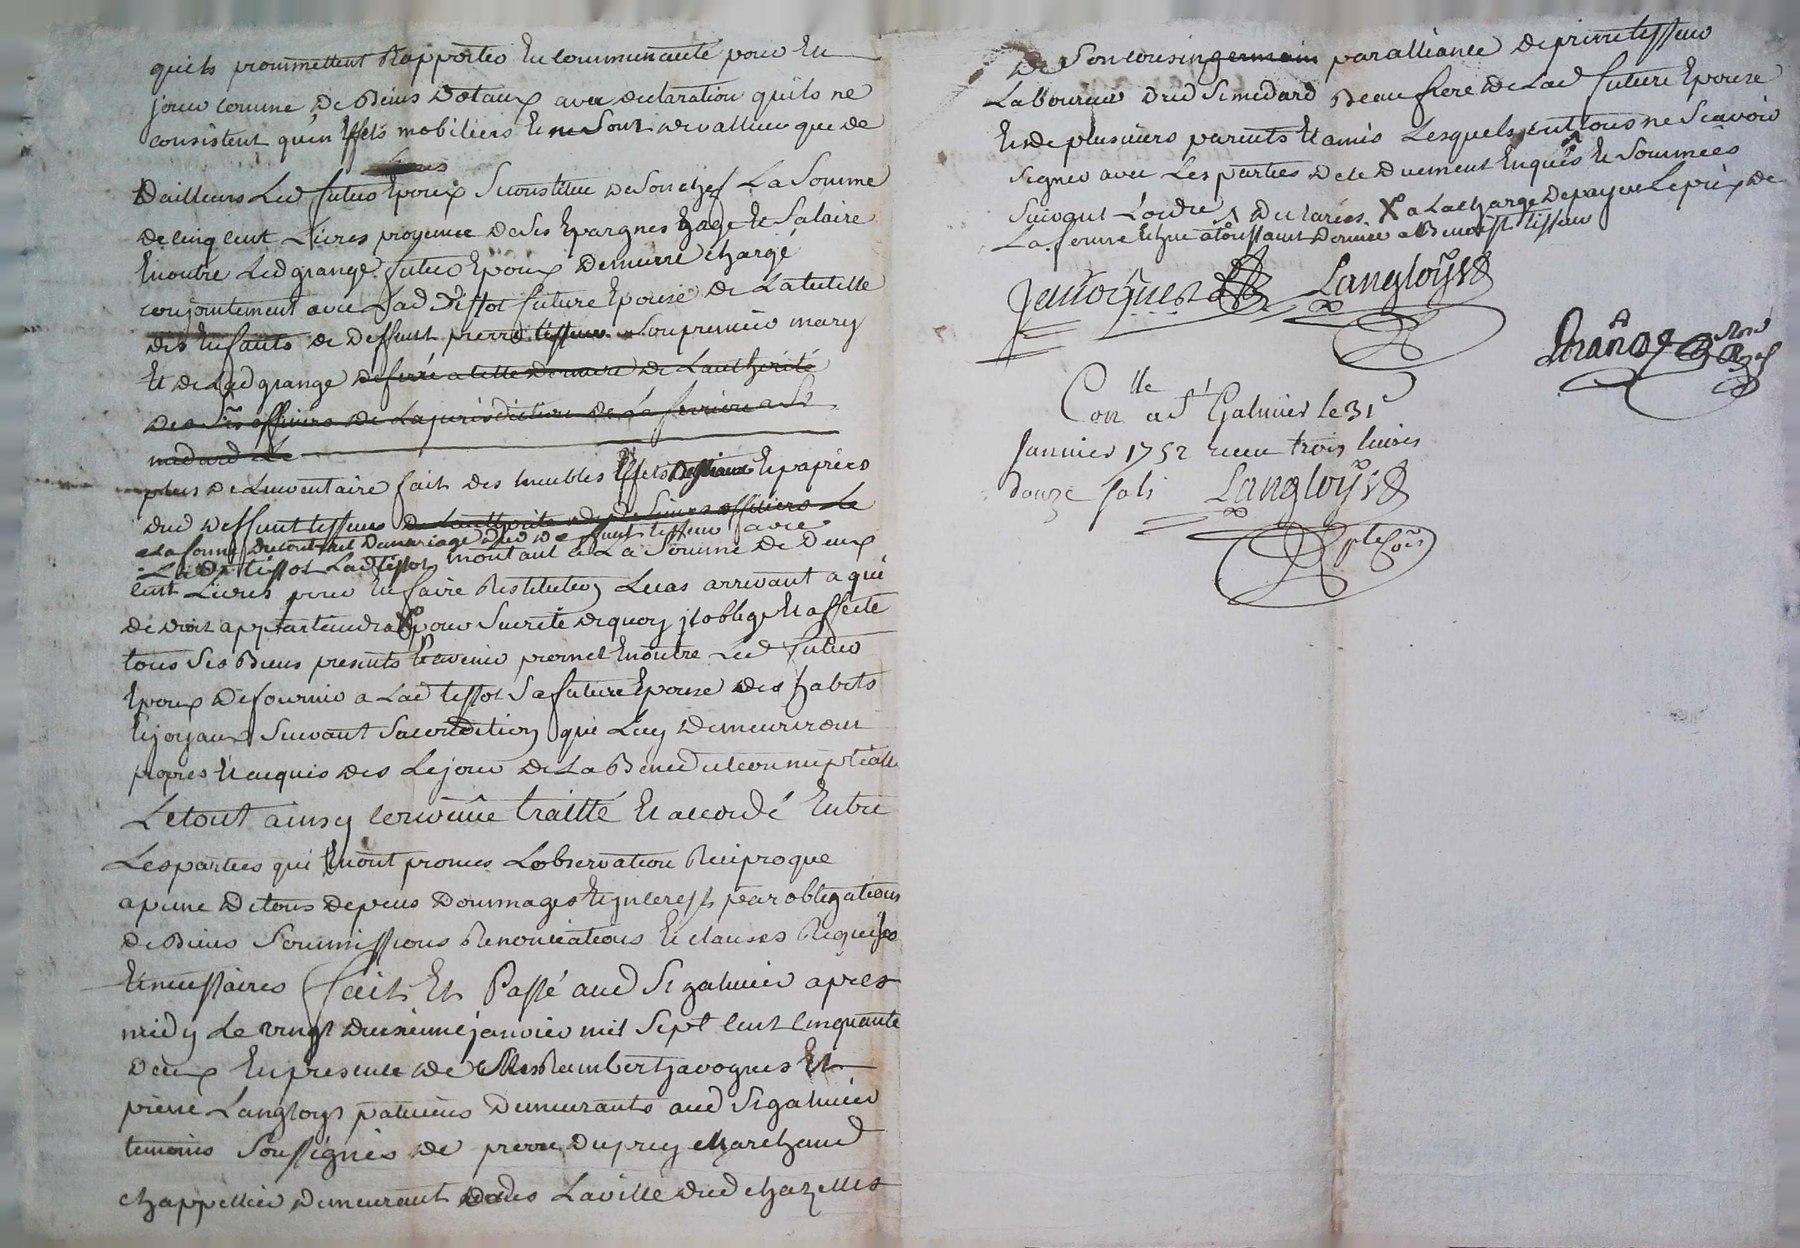 quils prommettent Rapporter En Communauté pour En
jouir comme De Biens Dotaux avec declaration quils ne
consistent quen Effets mobiliers Et ne Sont de valleur que de
Dailleurs Led futur Epoux Se constitue de Son chef La Somme
De Cinq Cent Livres provenue De Ses Epargnes gage Et Salaire
En outre Led grange futur Epoux Demeurre chargé
conjointement avec Lad tissot future Epouse De La tutelle
des Enfants de Deffunt pierre tisseur Son premier mary
Et de Lad grange deferré a cette Derniere De Lauthorité
des Srs officiers De La jurisdiction de La ferriere a St
medard Le
plus De Linventaire fait des meubles Effets Et papiers
dud deffunt tisseur de Lauthorité desd Sieurs officiers Le
a La forme du contract De mariage dud deffunt tisseur avec
Lad tissot Lad tissot montant a La Somme De Deux
Cent Livres pour En faire Restitution Le cas arrivant a qui
de droit appartiendra X pour Sureté dequoy il oblige Et affecte
tous Ses Biens presents Et avenir promet En outre Led futur
Epoux De fournir a Lad tissot Sa future Epouse des habits
Et joyaux Suivant Sa condition qui Luy Demeureront
propres Et acquis des Le jour de La Benediction nuptialle
Le tout ainsy Convenu traitté Et accordé Entre
Les parties qui En ont promis Lobservation Reciproque
a peine De tous depens Dommages Et jnterests par obligations
De Biens Soumissions Renonciations Et clauses Requises
Et necessaires fait Et Passé aud St galmier apres
midy Le vingt deuxieme janvier mil Sept Cent Cinquante
Deux En presence de Rambert javogues Et
pierre Langloys paticiers Demeurants aud St galmier
temoins Soussignés de pierre Duprey Marchand
chappellier Demeurant La ville dud chazelles
De Son cousin germain par alliance De pierre tisseur
Laboureur Dud St medard Beau frere De Lad future Epouse
Et de plusieurs parents Et amis Lesquels ont tous ne Scavoir
Signer avec Les parties De ce Duement Enquis Et Sommées
Suivant Lordre Declarées X a La charge De payer Le prix De
La ferme Echue a toussaint Derniere a Benoist tisseur
Javogues Langloys
Grange
Con lle a St Galmier le 31e
Janvier 1752 receu trois livres
douze sols Langloys